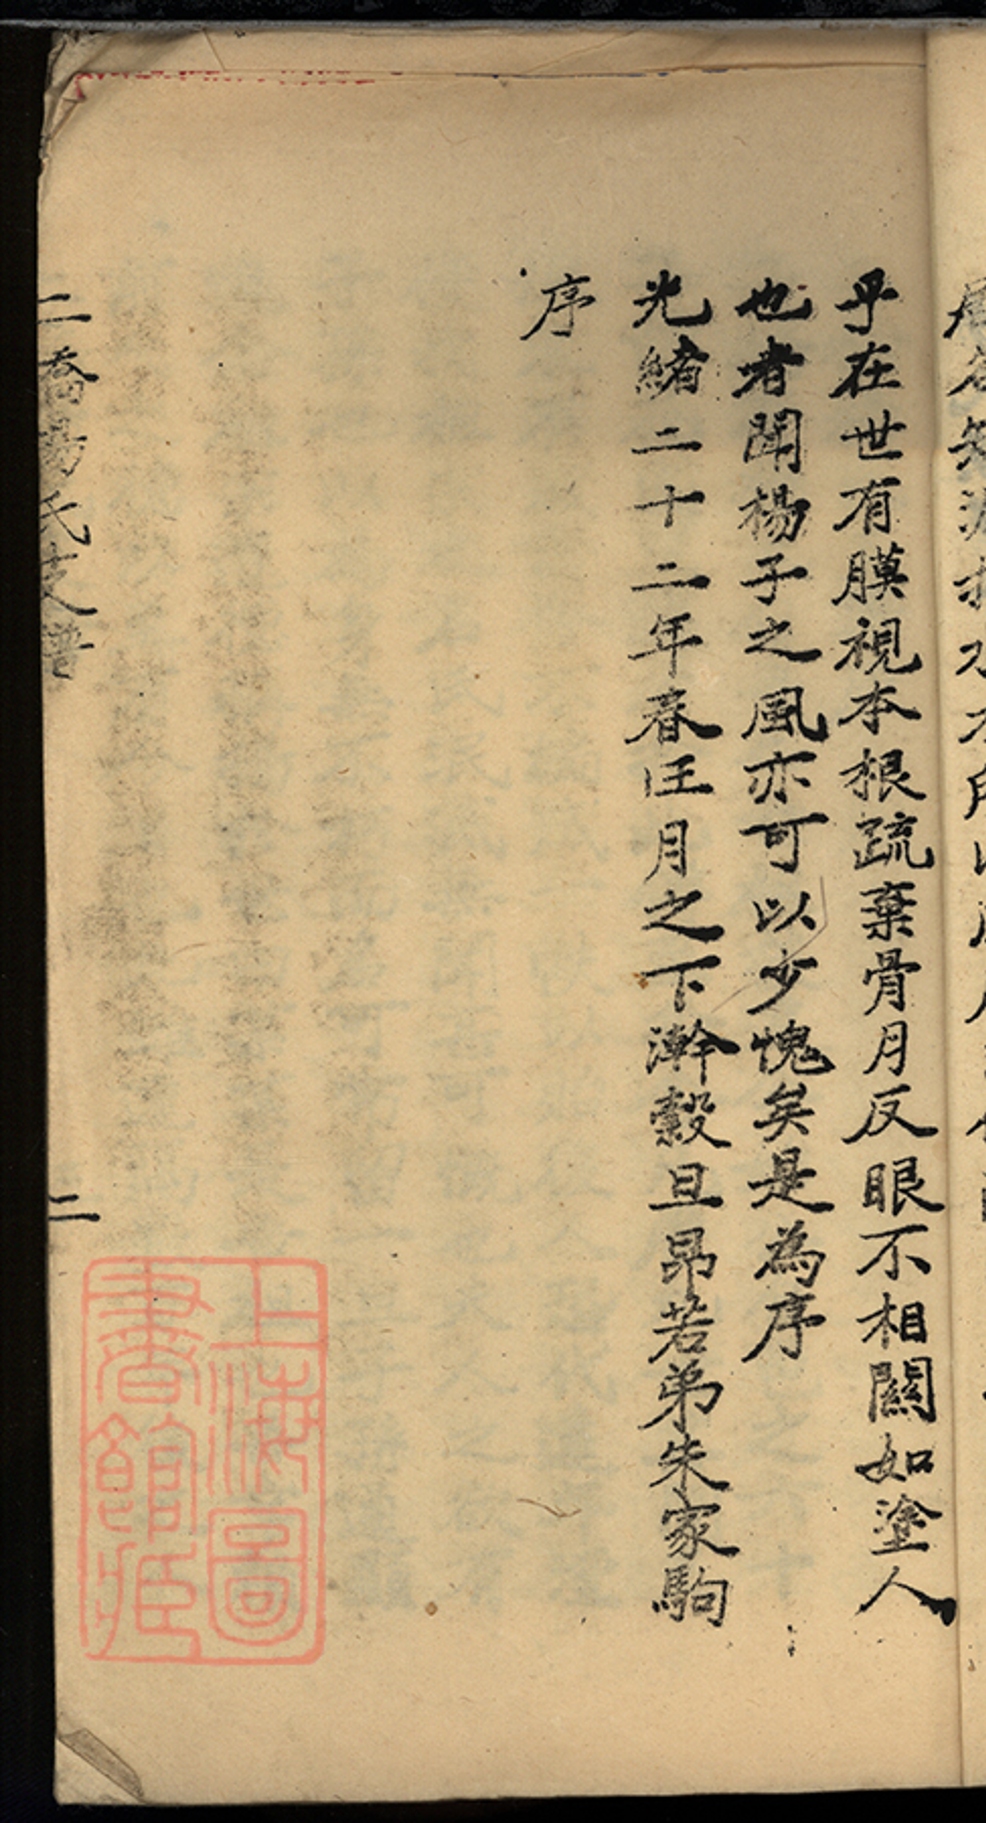 乎在世有膜視本根疏棄骨月反眼不相關如塗人
也者聞楊子之風亦可以少愧矣是為序
光緒二十二年春王月之下澣穀旦昴若弟朱家駒
序
二喬楊氏支譜
二
上海圖
書館藏